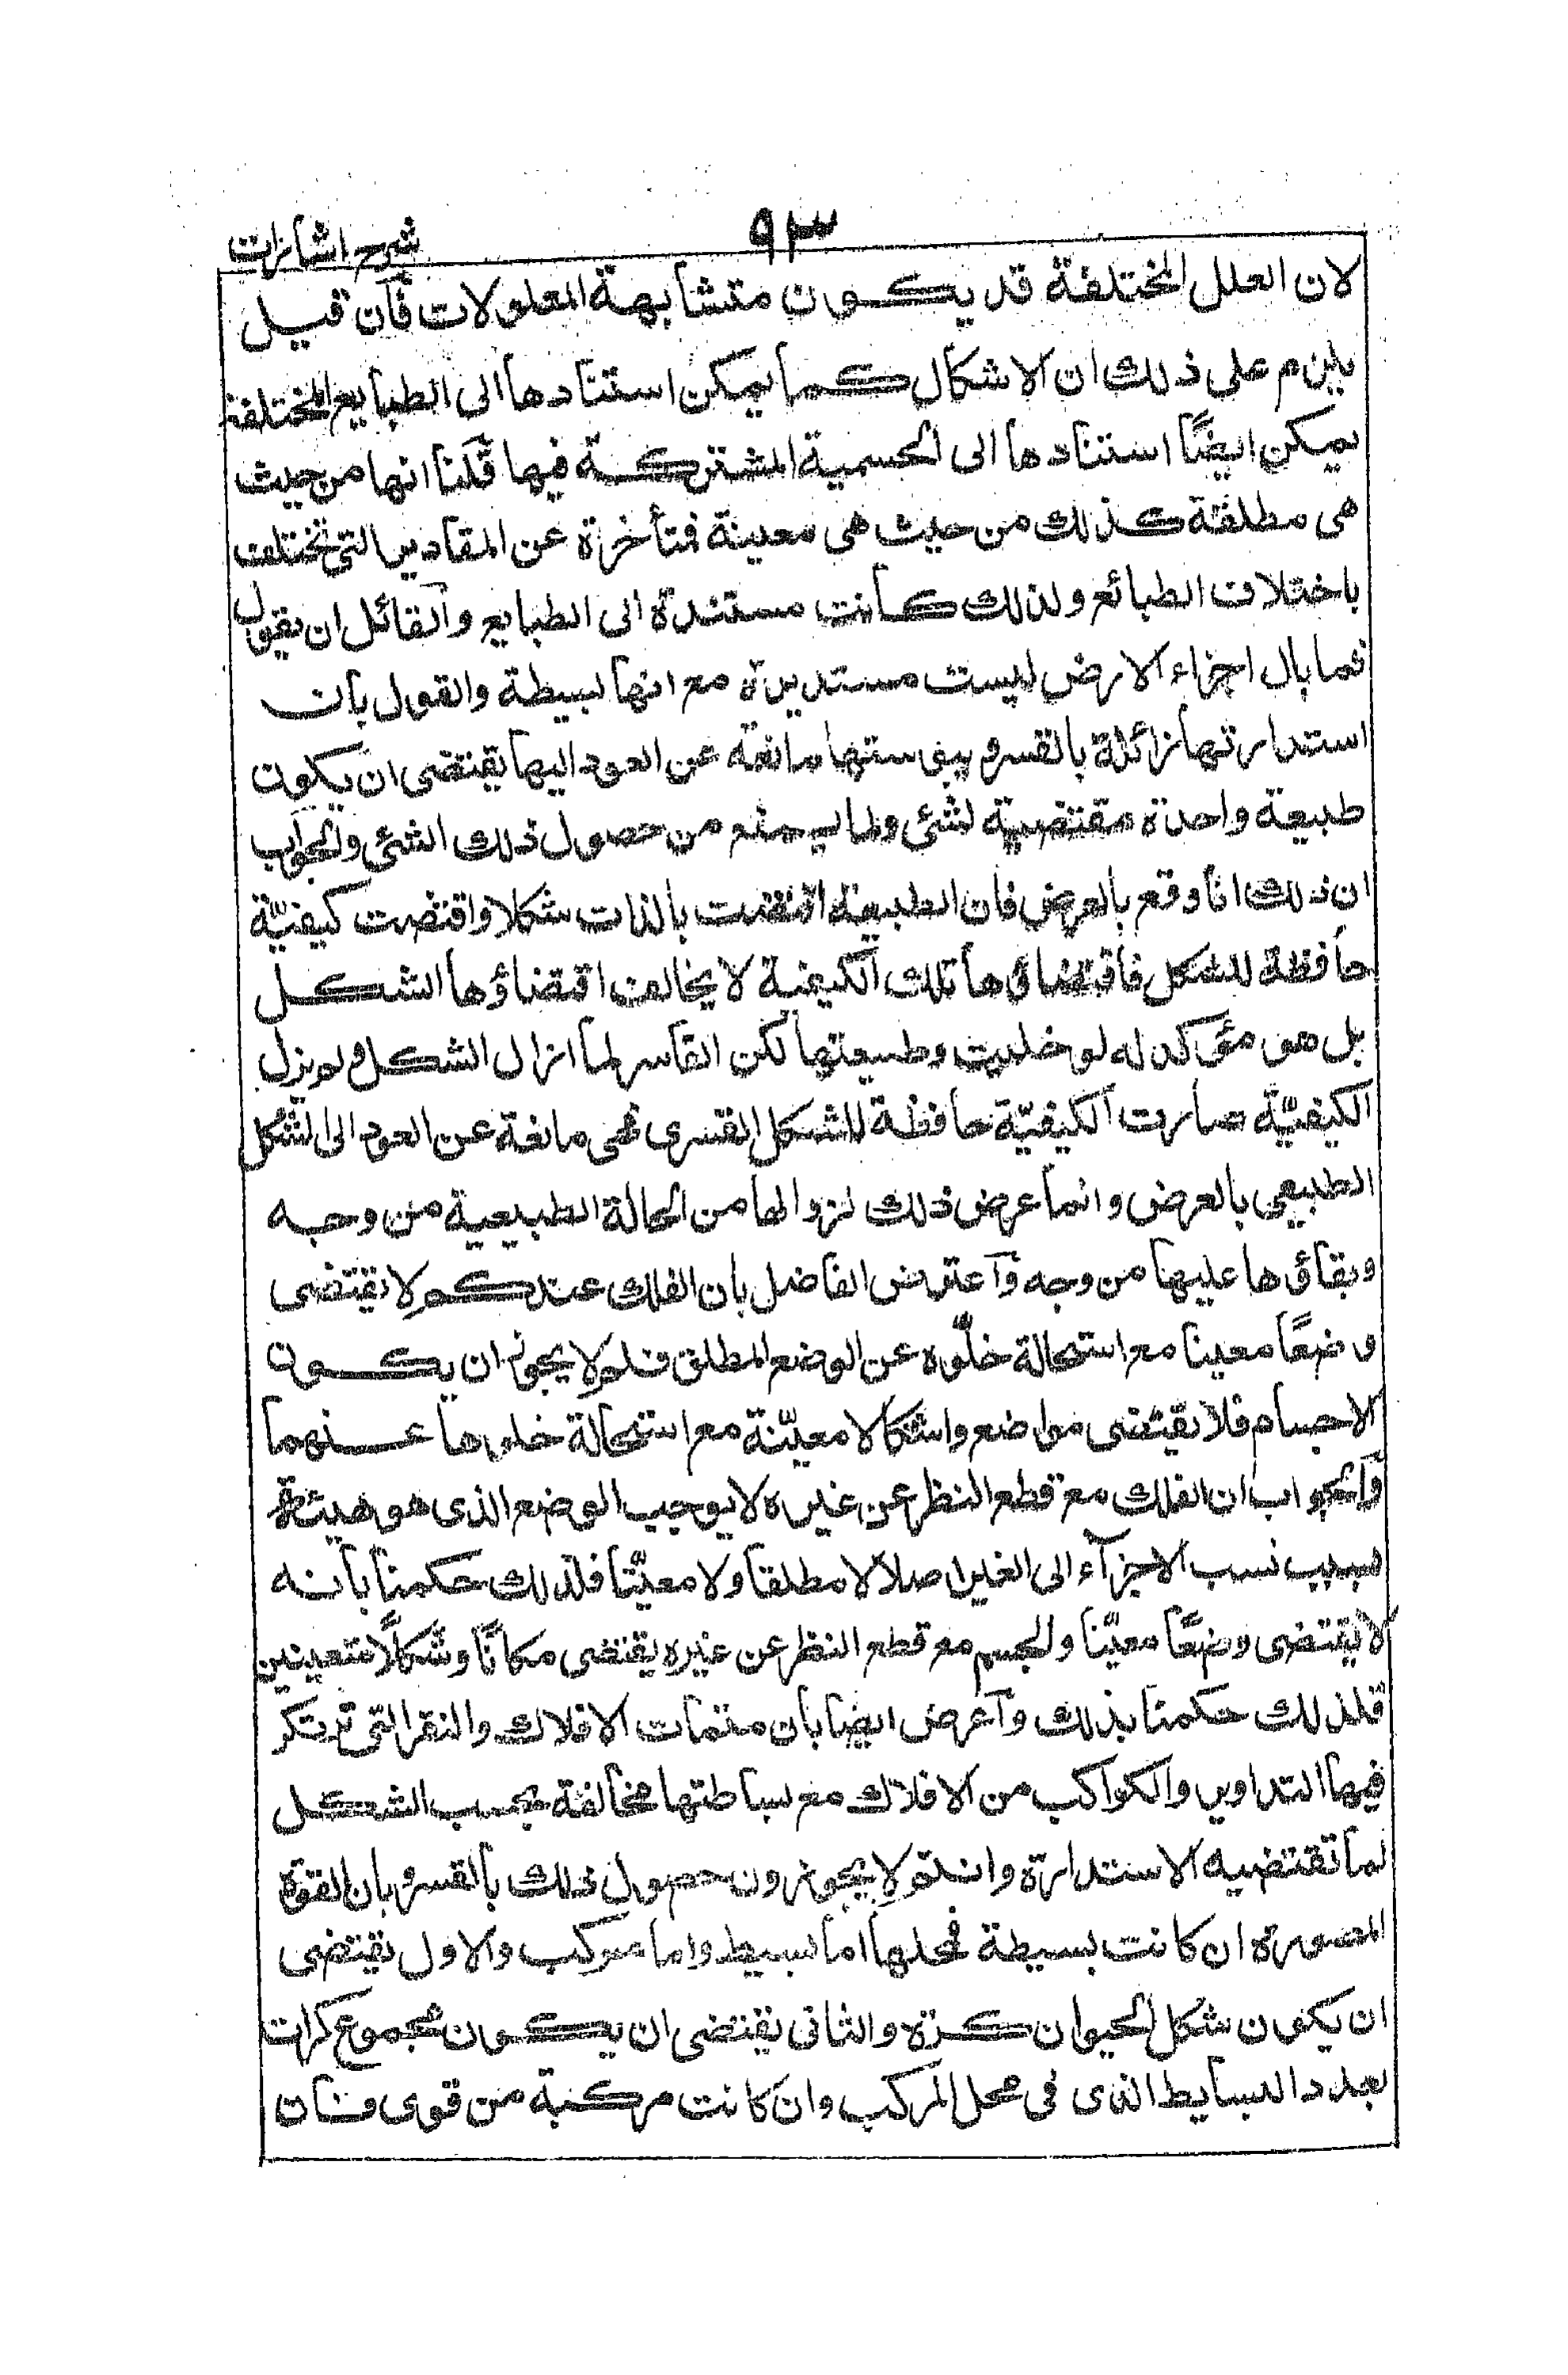 ٩٣
شرح اشارات
لان العلل المختلفة قد يكون متشابهة المعلولات فان قيل
يلزم على ذلك ان الاشكال كما يمكن استنادها الى الطبايع المختلفة
يمكن ايضًا استنادها الى الجسمية المشتركة فيها قلنا انها من حيث
هى مطلقة كذلك من حيث هى معينة فمتأخرة عن المقادير التى تختلف
باختلاف الطبائع ولذلك كانت مستندة الى الطبايع والقائل ان يقول
فما بال اجزاء الارض ليست مستديرة مع انها بسيطة والقول بان
استدارتها زائلة بالقسر و يبوستها مانعة عن العود اليها يقتضى ان يكون
طبيعة واحدة مقتضية لشئ ولما يمنع من حصول ذلك الشئ والجواب
ان ذلك انما وقع بالعرض فان الطبيعة اقتضت بالذات شكلا واقتضت كيفيّة
حافظة للشكل فاقتضاؤها تلك الكيفية لا يخالف اقتضاؤها الشكل
بل هو مؤكد له لو خليت وطبيعتها لكن القاسر لما ازال الشكل ولم يزل
الكيفيّة صارت الكيفيّة حافظة للشكل القسرى فهى مانعة عن العود الى الشكل
الطبيعى بالعرض وانما عرض ذلك لزوالها من الحالة الطبيعية من وجه
وبقاؤها عليها من وجه وآعترض الفاضل بان الفلك عندكم لا يقتضى
وضعًا معينا مع استحالة خلّوه عن الوضع المطلق فلم لا يجوز ان يكون
الاجسام فلا يقتضى مواضع واشكالا معيّنة مع استحالة خلوها عنهما
وآلجواب ان الفلك مع قطع النظر عن غيره لا يوجب الوضع الذى هو هيئة
بسبب نسب الاجزآء الى الغير اصلا لا مطلقا ولا معيّنا فلذلك حكمنا بانه
لا يقتضى وضعًا معيّنا والجسم مع قطع النظر عن غيره يقتضى مكانًا وشكلًا متعينين
فلذلك حكمنا بذلك وآعرض ايضا بان متممات الافلاك والنقر التى ترتكز
فيها التداوير والكواكب من الافلاك مع بساطتها مخالفة بحسب الشكل
لما تقتضيه الاستدارة وانتم لا يجوزون حصول ذلك بالقسر و بان القوة
المصورة ان كانت بسيطة فمحلها اما بسيط واما مركب والاول يقتضى
ان يكون شكل الحيوان كرة والثانى يقتضى ان يكون مجموع كرات
بعدد البسايط الذى فى محل المركب وان كانت مركبة من قوى فان